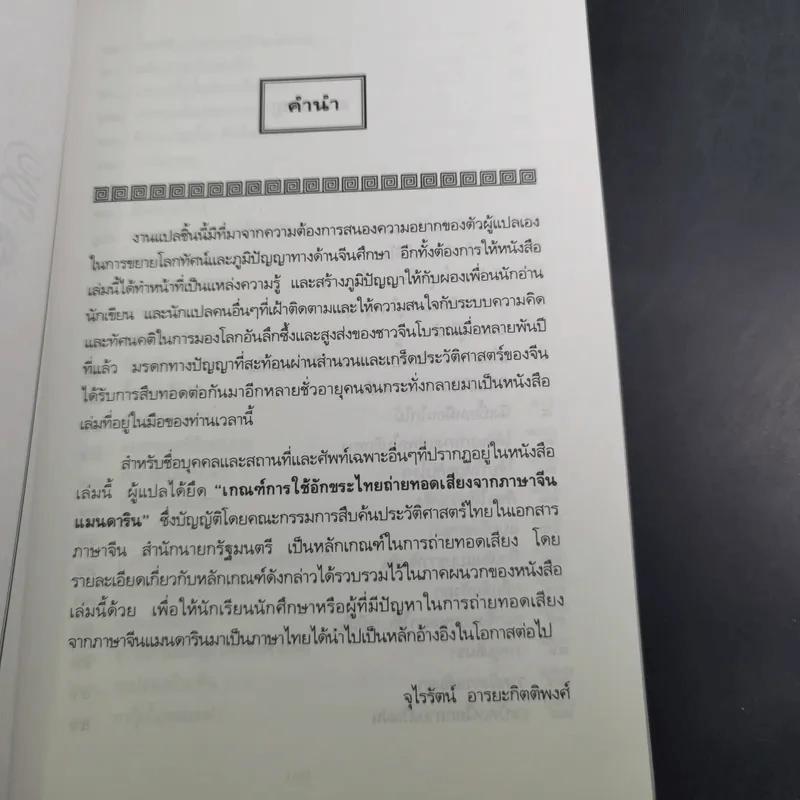 คำนำ
งานแปลชิ้นนี้มีที่มาจากความต้องการสนองความอยากของตัวผู้แปลเอง
ในการขยายโลกทัศน์และภูมิปัญญาทางด้านจีนศึกษา อีกทั้งต้องการให้หนังสือ
เล่มนี้ได้ทำหน้าที่เป็นแหล่งความรู้ และสร้างภูมิปัญญาให้กับผองเพื่อนนักอ่าน
นักเขียน และนักแปลคนอื่นๆที่เฝ้าติดตามและให้ความสนใจกับระบบความคิด
และทัศนคติในการมองโลกอันลึกซึ้งและสูงส่งของชาวจีนโบราณเมื่อหลายพันปี
ที่แล้ว มรดกทางปัญญาที่สะท้อนผ่านสำนวนและเกร็ดประวัติศาสตร์ของจีน
ได้รับการสืบทอดต่อกันมาอีกหลายชั่วอายุคนจนกระทั่งกลายมาเป็นหนังสือ
เล่มที่อยู่ในมือของท่านเวลานี้
สำหรับชื่อบุคคลและสถานที่และศัพท์เฉพาะอื่นๆที่ปรากฏอยู่ในหนังสือ
เล่มนี้ ผู้แปลได้ยึด “เกณฑ์การใช้อักขระไทยถ่ายทอดเสียงจากภาษาจีน
แมนดาริน” ซึ่งบัญญัติโดยคณะกรรมการสืบค้นประวัติศาสตร์ไทยในเอกสาร
ภาษาจีน สำนักนายกรัฐมนตรี เป็นหลักเกณฑ์ในการถ่ายทอดเสียง โดย
รายละเอียดเกี่ยวกับหลักเกณฑ์ดังกล่าวได้รวบรวมไว้ในภาคผนวกของหนังสือ
เล่มนี้ด้วย เพื่อให้นักเรียนนักศึกษาหรือผู้ที่มีปัญหาในการถ่ายทอดเสียง
จากภาษาจีนแมนดารินมาเป็นภาษาไทยได้นำไปเป็นหลักอ้างอิงในโอกาสต่อไป
จุไรรัตน์ อารยะกิตติพงศ์